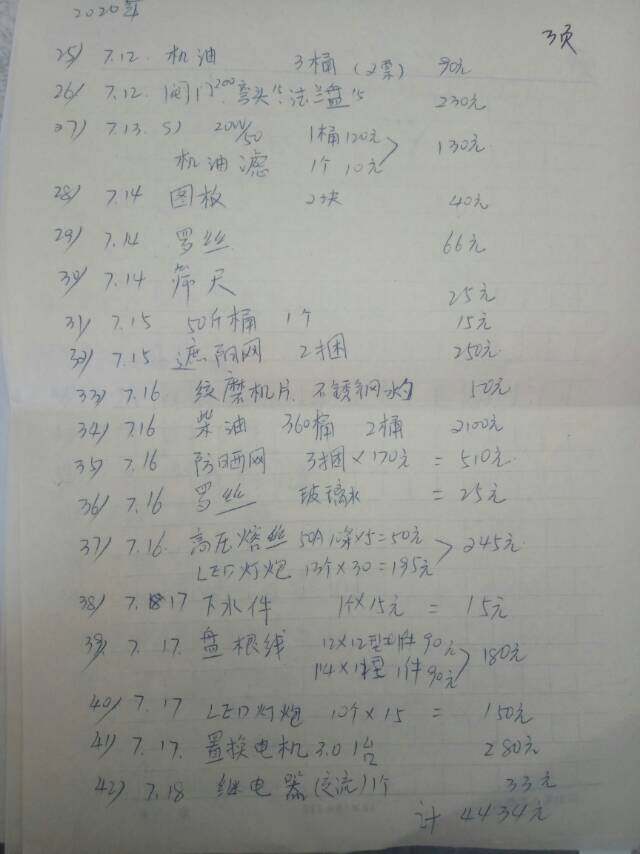 2020年
3页
25) 7.12. 机油 3桶 (2票) 90元
26) 7.12. 阀门200弯头"15.法兰盘"15 230元
27) 7.13. SJ 20W/50 1桶120元 130元
机油滤 1个 10元
28) 7.14 图板 2块 40元
29) 7.14 罗丝 66元
30) 7.14 25元
31) 7.15 50斤桶 1个 15元
32) 7.15 遮阳网 2捆 250元
33) 7.16 磨机片. 不锈钢 50元
34) 7.16 柴油 360桶 2桶 2100元
35) 7.16 防晒网 3捆×170元 = 510元
36) 7.16 罗丝 玻璃水 = 25元
37) 7.16. 高压熔丝 50A 10条×5=50元 245元
LED灯炮 13个×30=195元
38) 7.17 下水件 1个×15元 = 15元
39) 7.17. 盘根线 12×12型1件90元 180元
1件90元
40) 7.17 LED灯炮 10个×15 = 150元
41) 7.17. 置换电机3.0 1台 280元
42) 7.18 继电器(交流)1个 33元
计 4434元